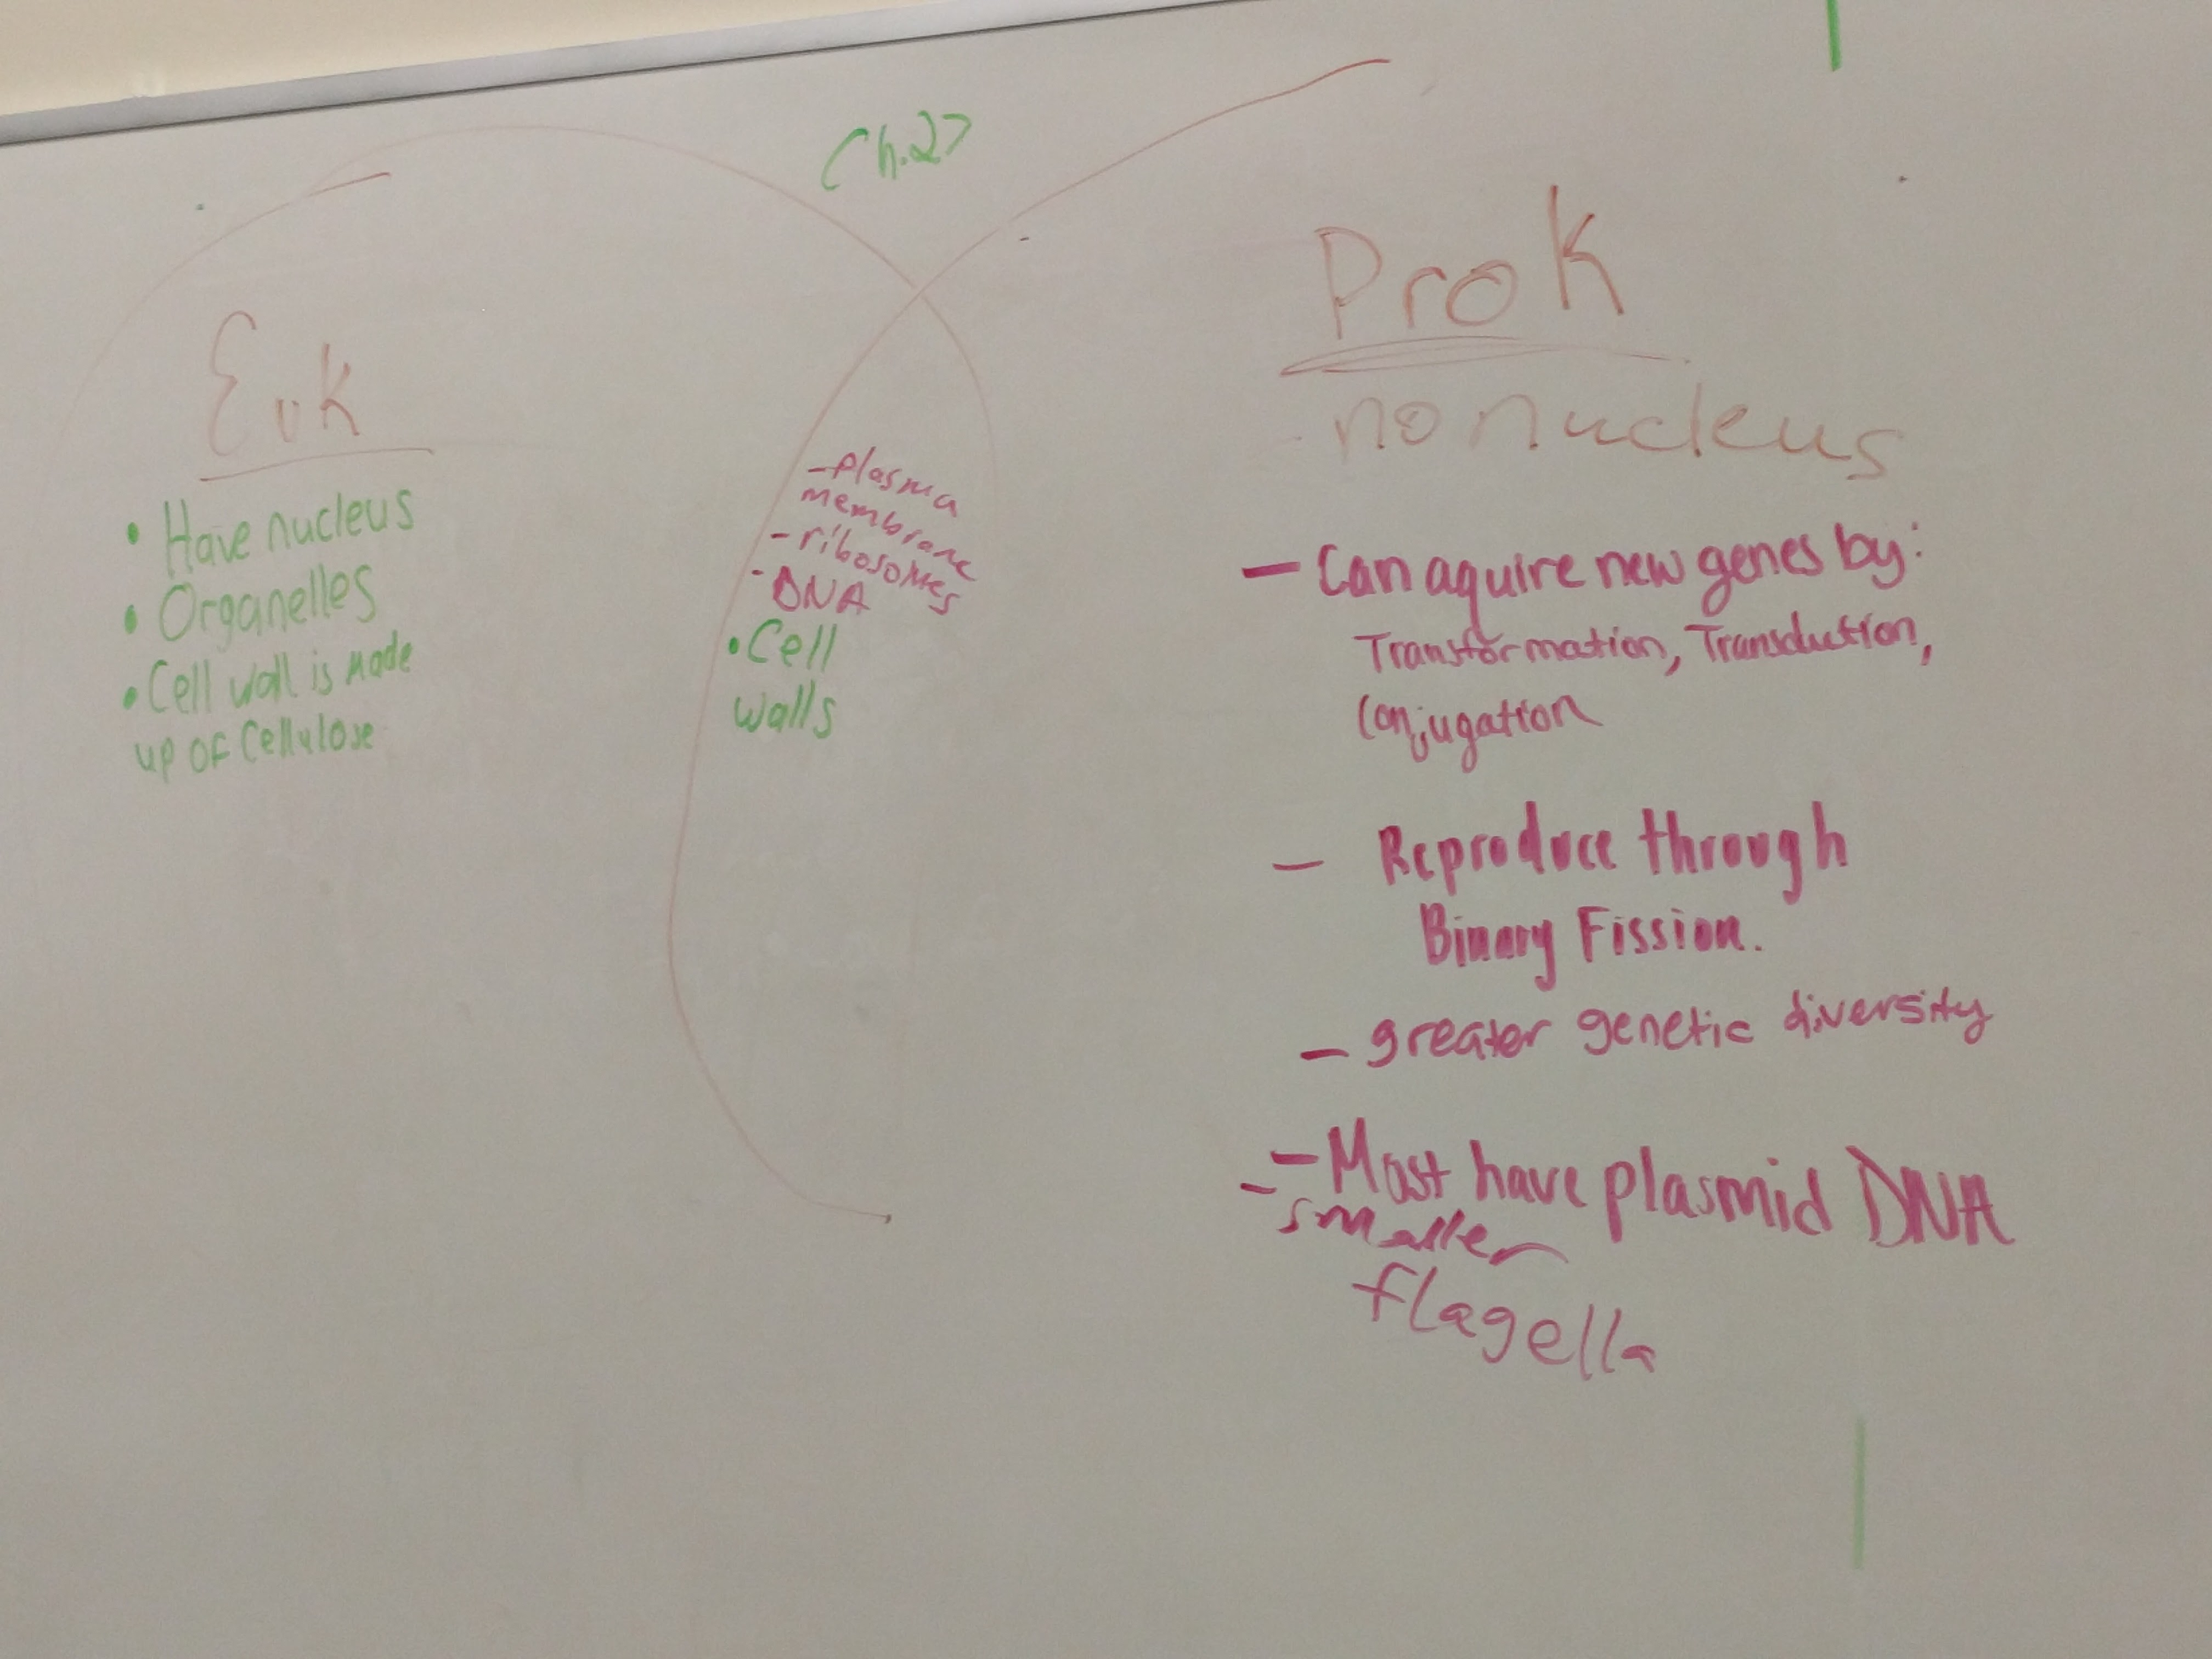 Ch.27
Euk
• Have nucleus
• Organelles
• Cell wall is made
up of Cellulose
- Plasma
membrane
- ribosomes
- DNA
• Cell
walls
ProK
- no nucleus
- Can aquire new genes by:
Transformation, Transduction,
Conjugation
- Reproduce through
Binary Fission.
- greater genetic diversity
- Most have plasmid DNA
- smaller
flagella